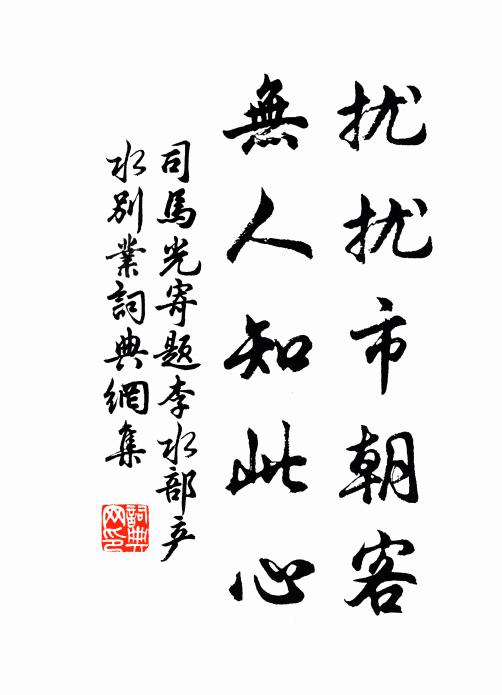 扰扰市朝客
無人知此心
司馬光寄題李水部产
水別業詞典網集
詞典网印